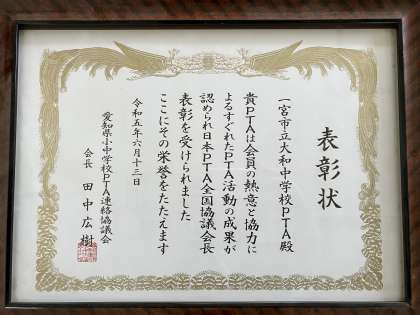 表彰状
一宮市立大和中学校PTA殿
貴PTAは会員の熱意と協力に
よるすぐれたPTA活動の成果が
認められ日本PTA全国協議会長
表彰を受けられました
ここにその栄誉をたたえます
令和五年六月十三日
愛知県小中学校PTA連絡協議会
会長 田中広樹